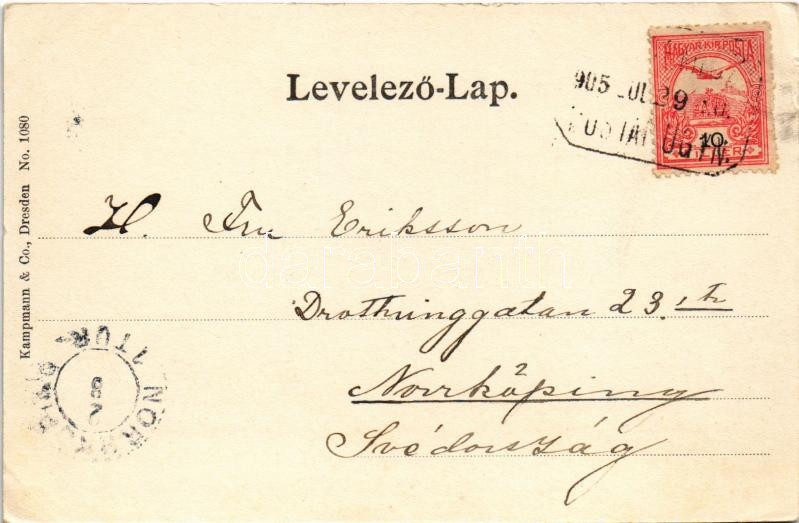 Levelező-Lap.
MAGYAR KIR. POSTA
905 JUL 29
10.
POSTAI ÜGYN.
H. Fru Eriksson
Drottninggatan 23.
Norrköping
Svédország
Kampmann & Co., Dresden No. 1080
1 TUR
NORR
darabanth